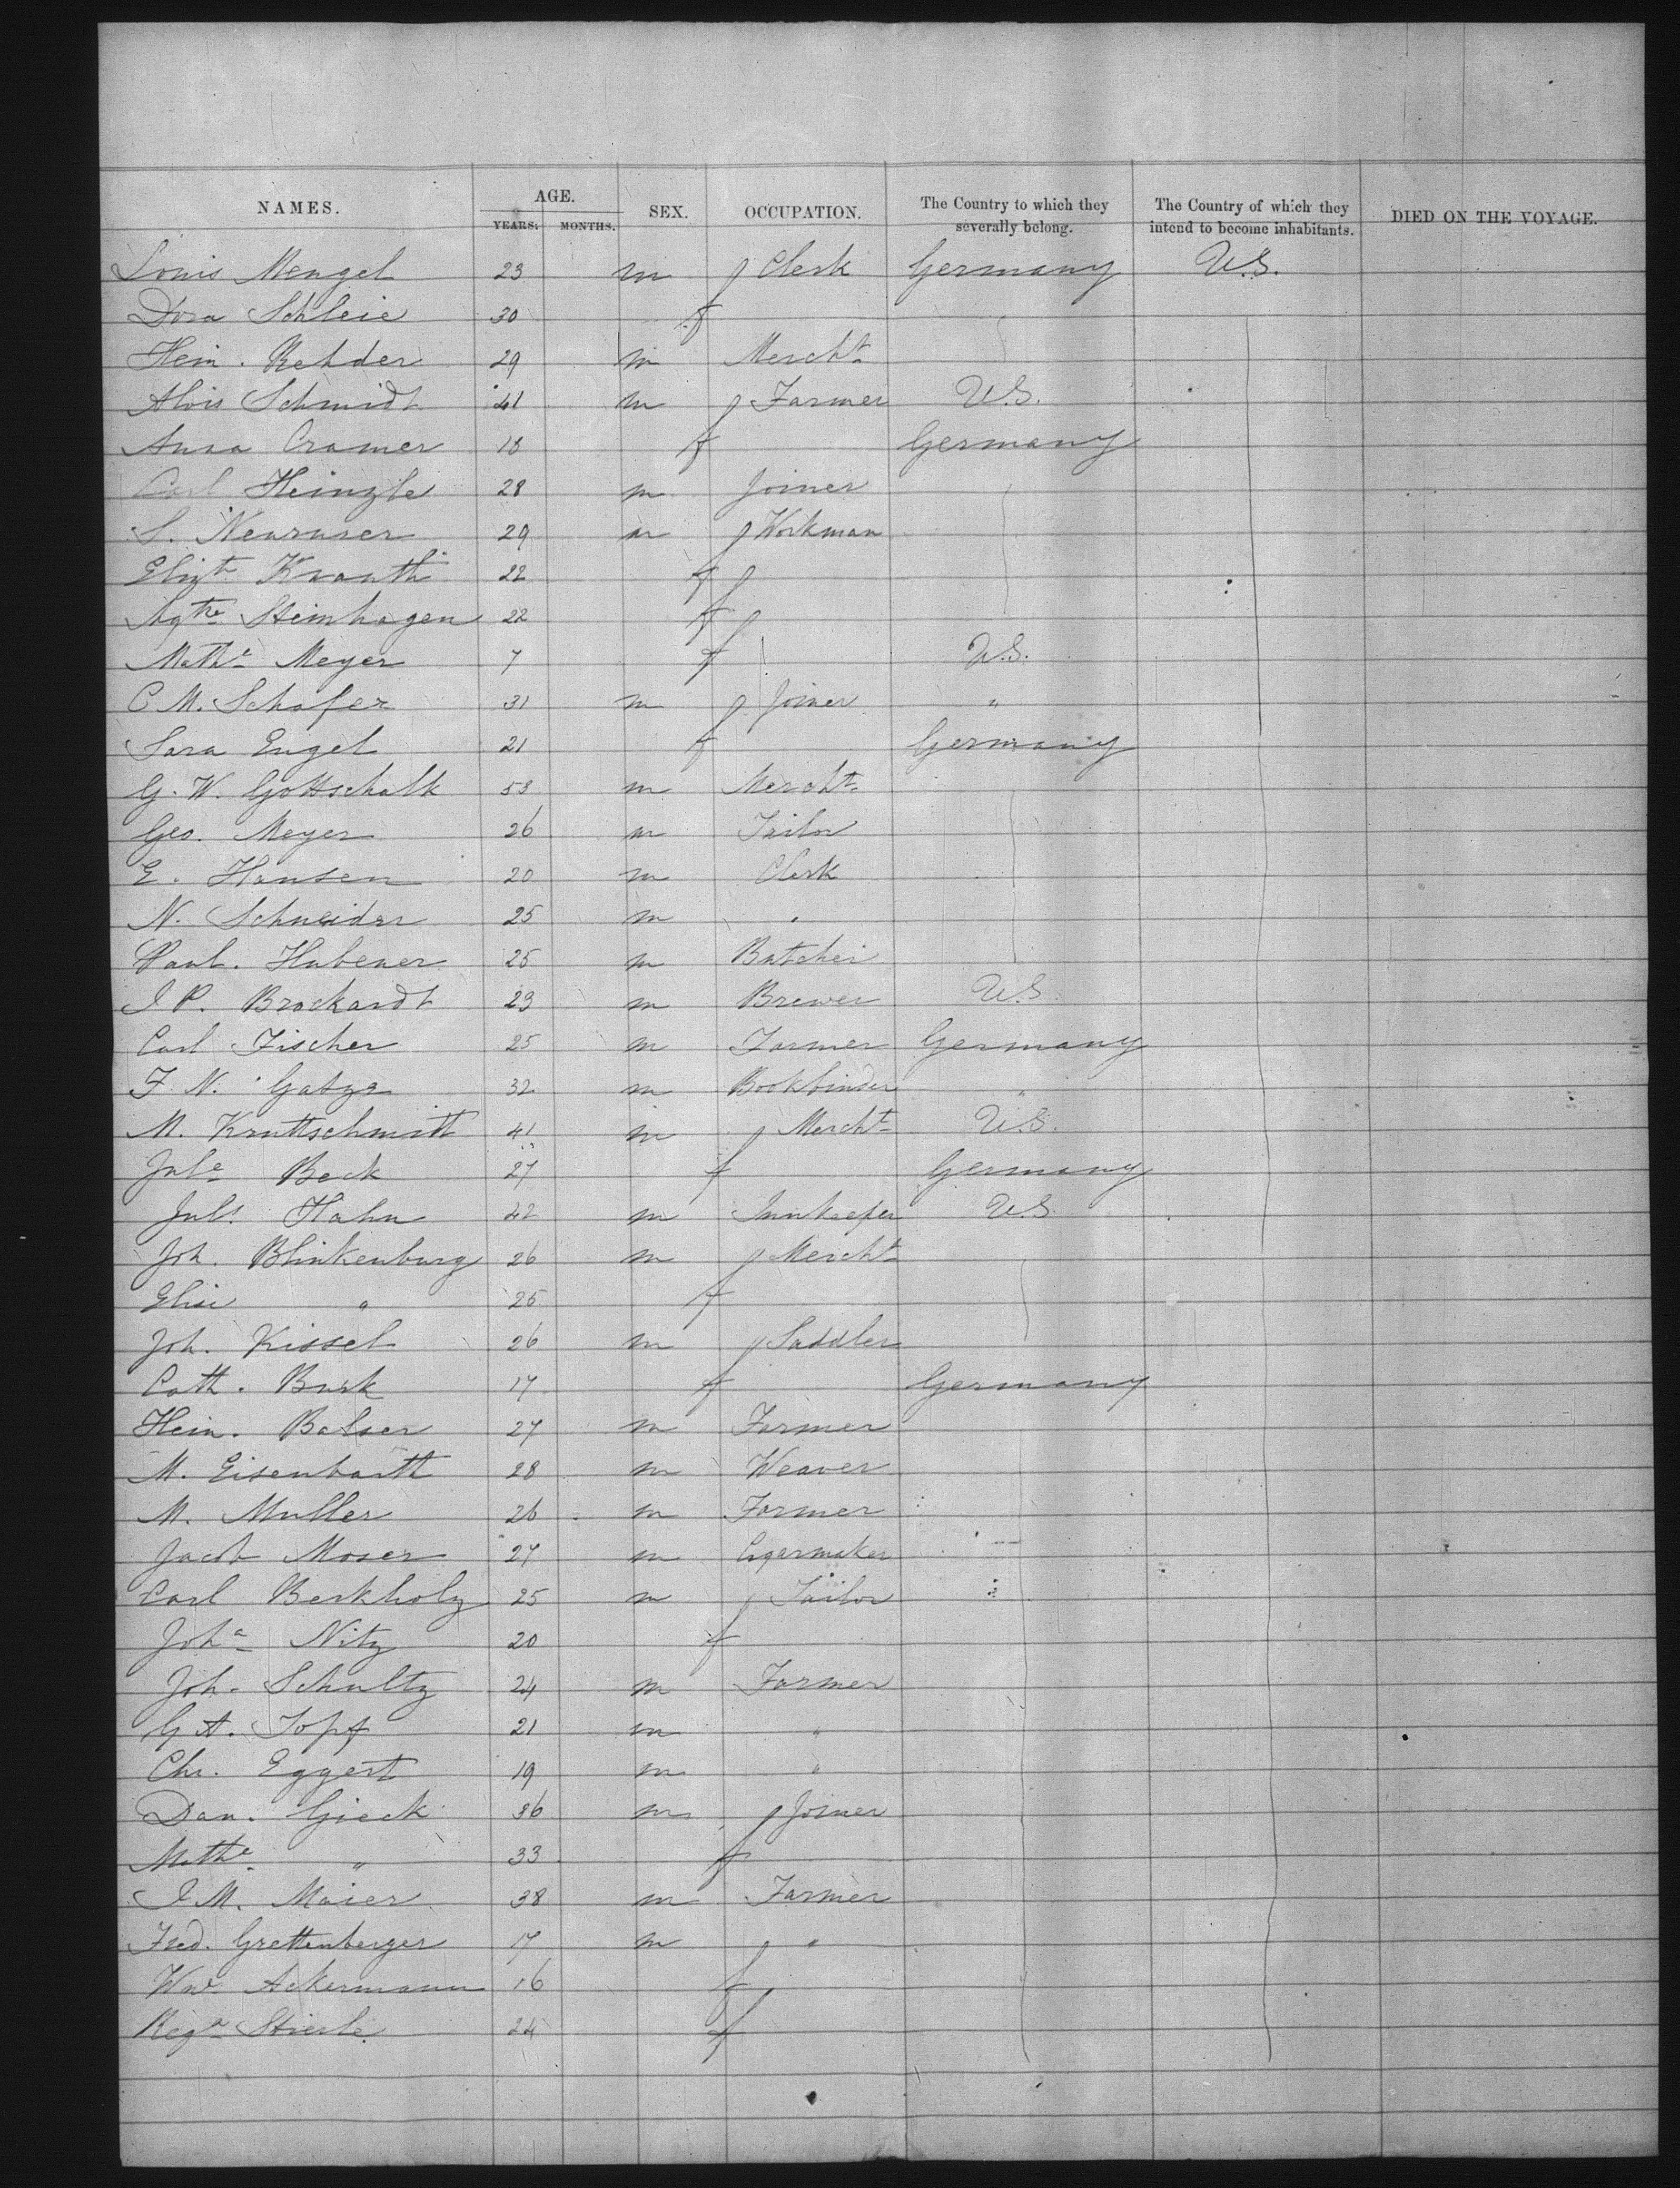 NAMES. AGE. YEARS. MONTHS. SEX. OCCUPATION. The Country to which they severally belong. The Country of which they intend to become inhabitants. DIED ON THE VOYAGE.
Louis Mengel 23 m Clerk Germany U.S.
Dora Schleie 30 f
Hein. Rehder 29 m Mercht
Alois Schmidt 41 m Farmer U.S.
Anna Cramer 18 f Germany
Carl Heinzle 28 m Joiner
S. 29 m Workman
Elizth Knauth 22 f
Agthe Steinhagen 22 f
Mathe Meyer 7 f U.S.
C. M. Schafer 31 m Joiner "
Sara Engel 21 f Germany
G. W. Gottschalk 53 m Mercht
Geo. Meyer 26 m Tailor
E. Hansen 20 m Clerk
N. Schneider 25 m "
Paul. Hubener 25 m Butcher
I P. Brockardt 23 m Brewer U.S.
Carl Fischer 25 m Farmer Germany
F. N. Gatze 32 m Bookbinder "
M. Kruttschmitt 41 m Mercht U.S.
Jule Beck 27 f Germany
Juls Hahn 42 m Innkeeper U.S.
Joh. Blinkenburg 26 m Mercht
Elise " 25 f
Joh. Kissel 26 m Saddler
Cath. Burk 17 f Germany
Hein. Balser 27 m Farmer
M. Eisenbarth 28 m Weaver
M. Muller 26 m Farmer
Jacob Moser 27 m Cigarmaker
Carl Berkholz 25 m Tailor
Joha Nitz 20 f
Joh. Schultz 24 m Farmer
G. A. Topf 21 m "
Chr. Eggert 19 m "
Dan. Gieck 36 m Joiner
Mathe " 33 f
I. M. Maier 38 m Farmer
Fred. Grettenberger 17 m "
Ackermann 16 f
Rega Stierle 24 f